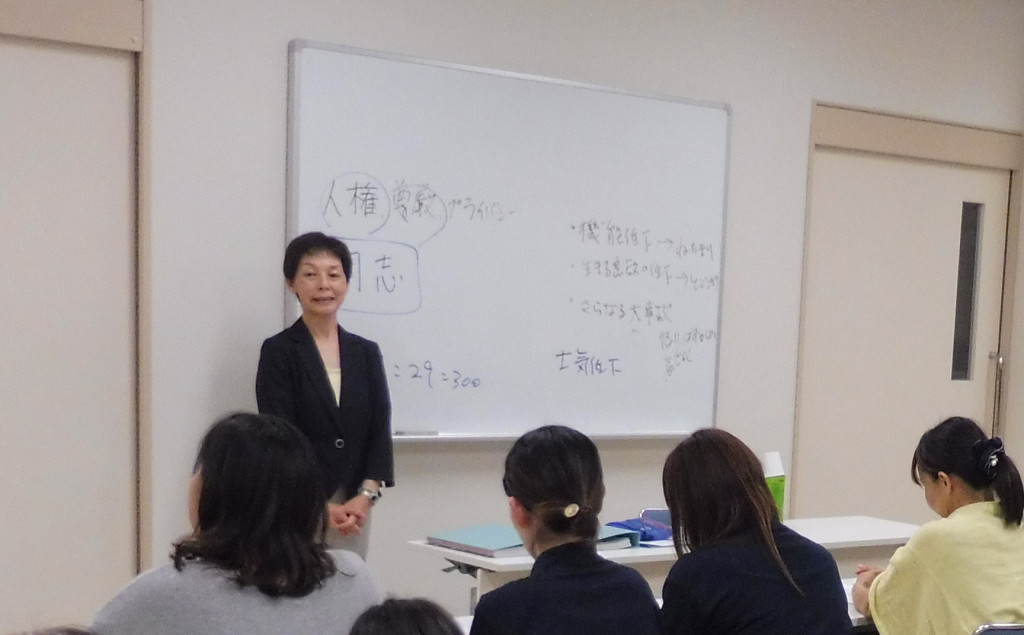 人権 尊厳 プライバシー
志
: 29 : 300
・機能低下→ねたきり
・生きる意欲の低下→
・さらなる大事故
士気低下